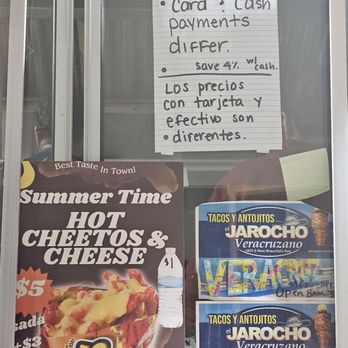 • Card & Cash
payments
differ.
• Save 4% w/ cash.
Los precios
con tarjeta y
efectivo son
• diferentes.
Best Taste In Town!
Summer Time
HOT
CHEETOS &
CHEESE
$1
$5
+$3
TACOS Y ANTOJITOS
el JAROCHO
Veracruzano
Open 8am
TACOS Y ANTOJITOS
el JAROCHO
Veracruzano